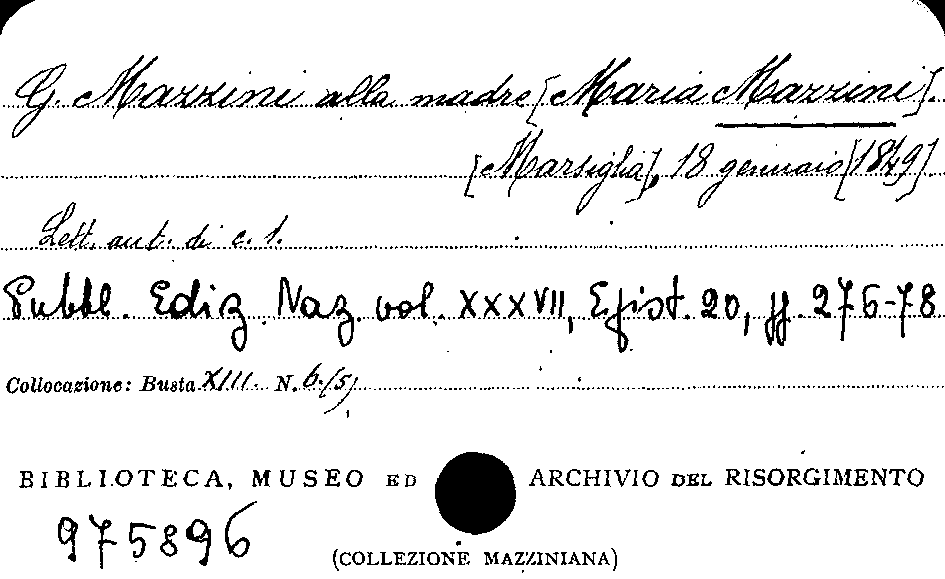 G. Mazzini alla madre [Maria Mazzini].
[Marsiglia], 18 gennaio [1849]
Lett. aut. di c. 1.
Pubbl. Ediz. Naz. vol. XXXVII, Epist. 20, pp. 276-78
Collocazione: Busta XIII. N. 6.(5)
BIBLIOTECA, MUSEO ED ARCHIVIO DEL RISORGIMENTO
975896
(COLLEZIONE MAZZINIANA)